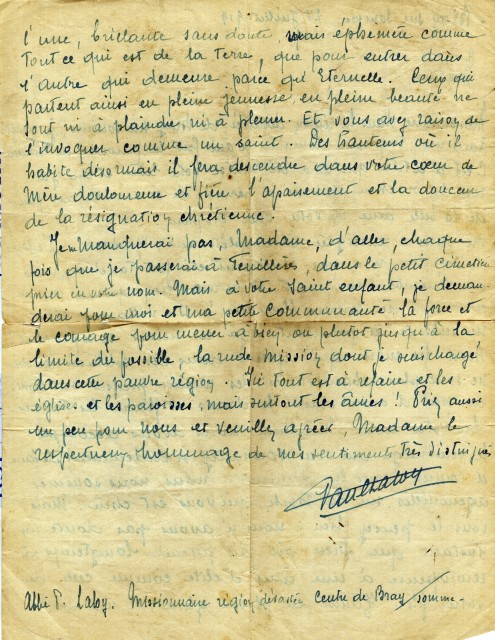 l'une, brillante sans doute, mais ephemère comme
tout ce qui est de la terre, que pour entrer dans
l'autre qui demeure parce qu'Eternelle. Ceux qui
partent ainsi en pleine jeunesse en pleine beauté ne
sont ni à plaindre, ni à pleurer. Et vous avez raison de
l'invoquer comme un saint. Des hauteurs où il
habite désormais il fera descendre dans votre cœur de
Mère douloureuse et fière l'apaisement et la douceur
de la résignation chrétienne.
Je ne manquerai pas, Madame, d'aller, chaque
fois que je passerai à Feuillères, dans le petit cimetière
prier en votre nom. Mais à votre saint enfant, je deman
derai pour moi et ma petite communauté la force et
le courage pour mener à bien ou plutôt jusqu'à la
limite du possible, la rude mission dont je suis chargé
dans cette pauvre région. Ici tout est à refaire et les
églises et les paroisses, mais surtout les âmes ! Priez aussi
un peu pour nous et veuillez agréer, Madame le
respectueux hommage de mes sentiments très distingués
Paul Laloy
Abbé P. Laloy. Missionnaire région dévastée centre de Bray/Somme-